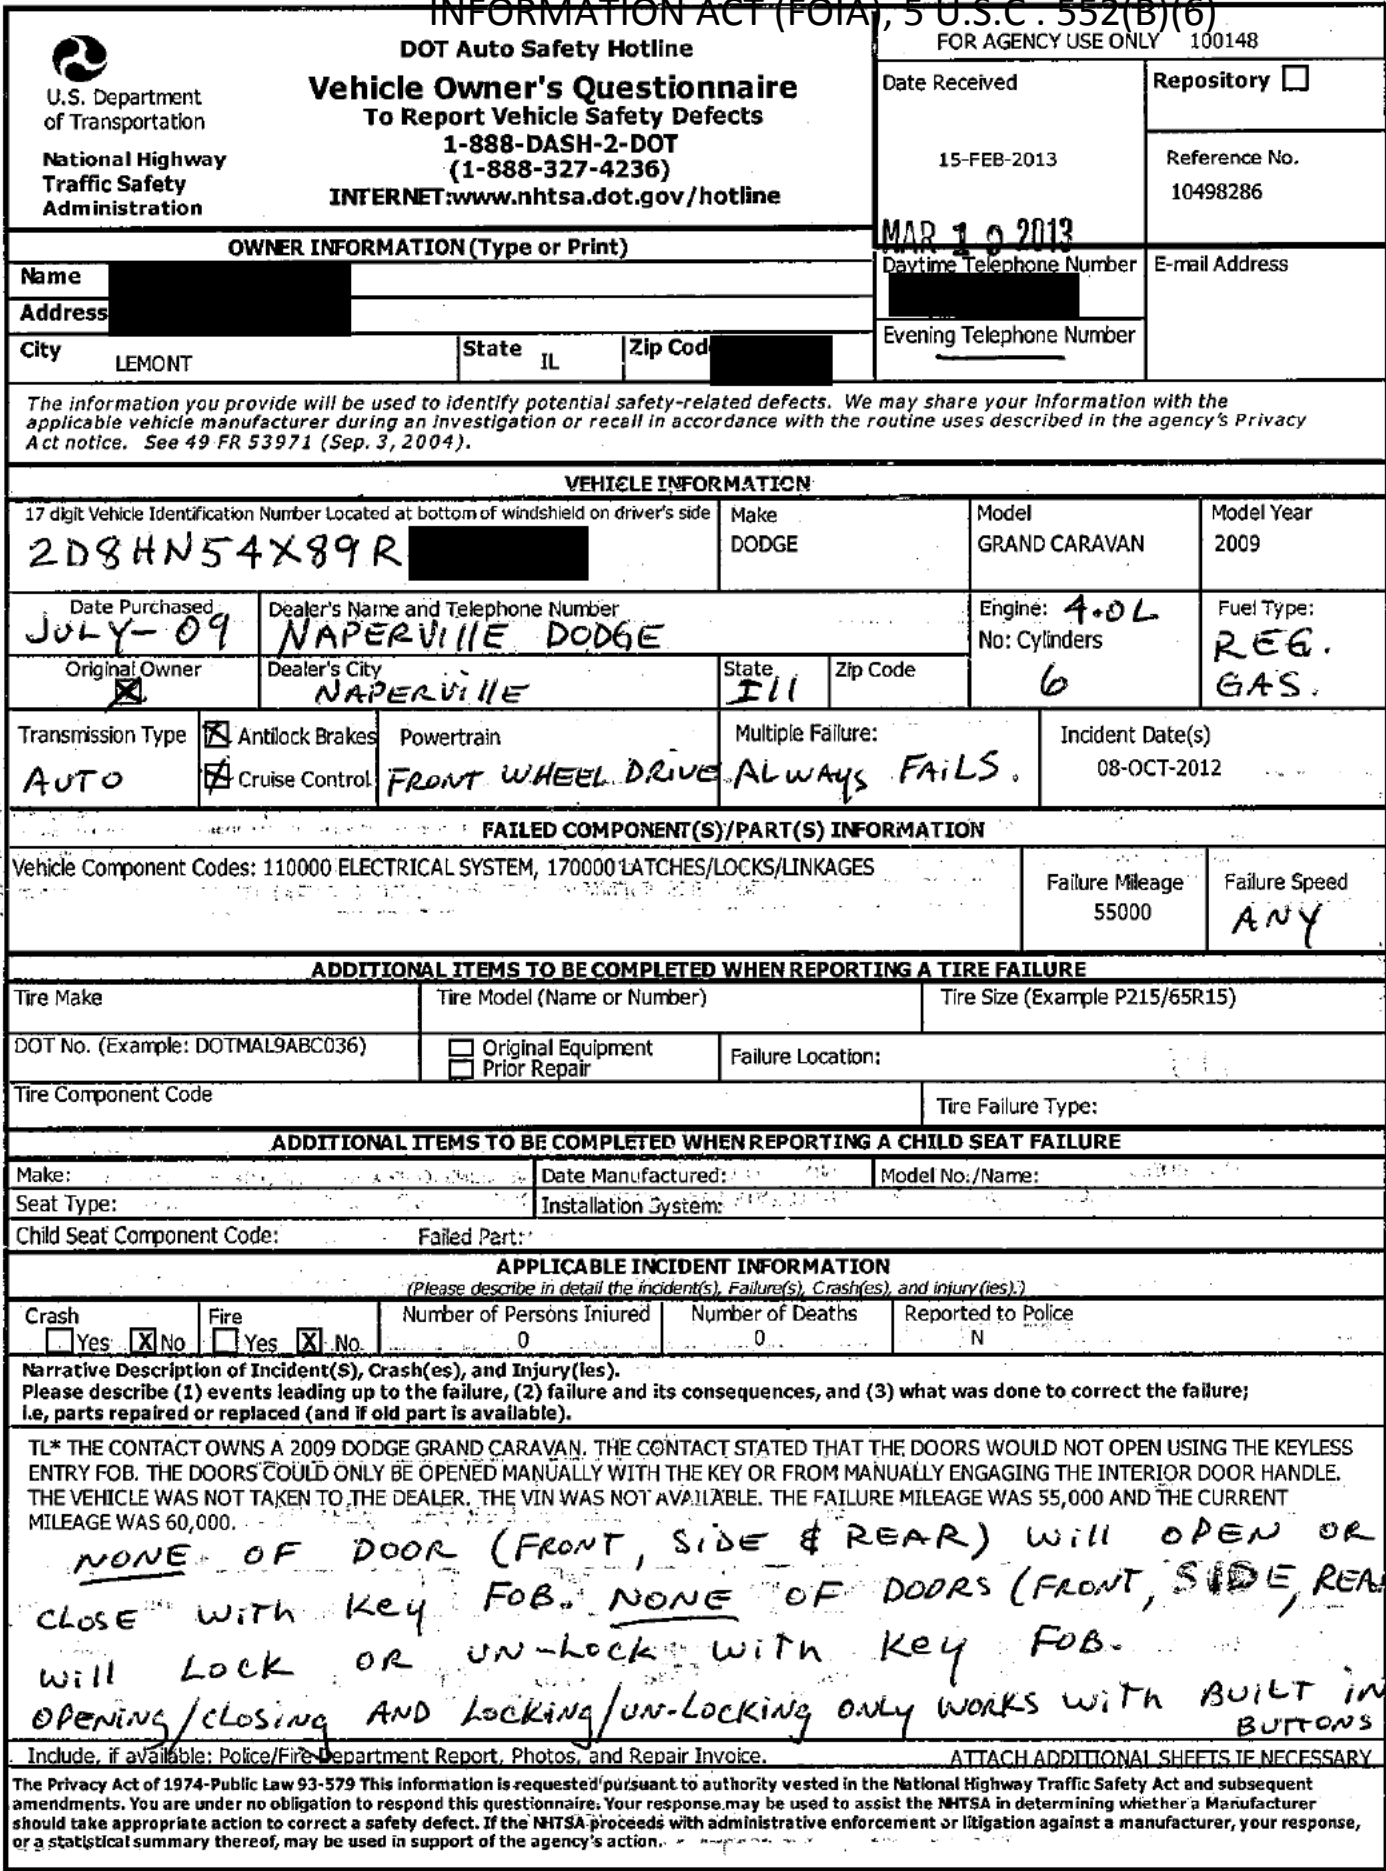 INFORMATION ACT (FOIA), 5 U.S.C . 552(B)(6)
U.S. Department
of Transportation
National Highway
Traffic Safety
Administration
DOT Auto Safety Hotline
Vehicle Owner's Questionnaire
To Report Vehicle Safety Defects
1-888-DASH-2-DOT
(1-888-327-4236)
INTERNET:www.nhtsa.dot.gov/hotline
FOR AGENCY USE ONLY 100148
Date Received
15-FEB-2013
MAR 10 2013
Repository
Reference No.
10498286
OWNER INFORMATION (Type or Print)
Name
Address
City LEMONT State IL Zip Cod
Daytime Telephone Number
E-mail Address
Evening Telephone Number
The information you provide will be used to identify potential safety-related defects. We may share your information with the
applicable vehicle manufacturer during an investigation or recall in accordance with the routine uses described in the agency's Privacy
Act notice. See 49 FR 53971 (Sep. 3, 2004).
VEHICLE INFORMATION
17 digit Vehicle Identification Number Located at bottom of windshield on driver's side
2D8HN54X89R
Make
DODGE
Model
GRAND CARAVAN
Model Year
2009
Date Purchased
JULY-09
Dealer's Name and Telephone Number
NAPERVIllE DODGE
Engine: 4.0L
No: Cylinders
6
Fuel Type:
REG.
GAS.
Original Owner
Dealer's City
NAPERVillE
State
Ill
Zip Code
Transmission Type
AUTO
Antilock Brakes
Cruise Control
Powertrain
FRONT WHEEL DRIVE
Multiple Failure:
ALWAYS FAILS.
Incident Date(s)
08-OCT-2012
FAILED COMPONENT(S)/PART(S) INFORMATION
Vehicle Component Codes: 110000 ELECTRICAL SYSTEM, 170000 LATCHES/LOCKS/LINKAGES
Failure Mileage
55000
Failure Speed
ANY
ADDITIONAL ITEMS TO BE COMPLETED WHEN REPORTING A TIRE FAILURE
Tire Make
Tire Model (Name or Number)
Tire Size (Example P215/65R15)
DOT No. (Example: DOTMAL9ABC036)
Original Equipment
Prior Repair
Failure Location:
Tire Component Code
Tire Failure Type:
ADDITIONAL ITEMS TO BE COMPLETED WHEN REPORTING A CHILD SEAT FAILURE
Make:
Date Manufactured:
Model No./Name:
Seat Type:
Installation System:
Child Seat Component Code:
Failed Part:
APPLICABLE INCIDENT INFORMATION
(Please describe in detail the incident(s), Failure(s), Crash(es), and injury(ies).)
Crash
Yes X No
Fire
Yes X No
Number of Persons Injured
0
Number of Deaths
0
Reported to Police
N
Narrative Description of Incident(S), Crash(es), and Injury(ies).
Please describe (1) events leading up to the failure, (2) failure and its consequences, and (3) what was done to correct the failure;
i.e, parts repaired or replaced (and if old part is available).
TL* THE CONTACT OWNS A 2009 DODGE GRAND CARAVAN. THE CONTACT STATED THAT THE DOORS WOULD NOT OPEN USING THE KEYLESS
ENTRY FOB. THE DOORS COULD ONLY BE OPENED MANUALLY WITH THE KEY OR FROM MANUALLY ENGAGING THE INTERIOR DOOR HANDLE.
THE VEHICLE WAS NOT TAKEN TO THE DEALER. THE VIN WAS NOT AVAILABLE. THE FAILURE MILEAGE WAS 55,000 AND THE CURRENT
MILEAGE WAS 60,000.
NONE OF DOOR (FRONT, SIDE & REAR) Will OPEN OR
CLOSE WITH Key FOB. NONE OF DOORS (FRONT, SIDE, REA
Will LOCK OR UN-LOCK WITH Key FOB.
OPENING/CLOSING AND LOCKING/UN-LOCKING ONLY WORKS WITH BUILT IN
BUTTONS
Include, if available: Police/Fire Department Report, Photos, and Repair Invoice.
ATTACH ADDITIONAL SHEETS IF NECESSARY
The Privacy Act of 1974-Public Law 93-579 This information is requested pursuant to authority vested in the National Highway Traffic Safety Act and subsequent
amendments. You are under no obligation to respond this questionnaire. Your response may be used to assist the NHTSA in determining whether a Manufacturer
should take appropriate action to correct a safety defect. If the NHTSA proceeds with administrative enforcement or litigation against a manufacturer, your response,
or a statistical summary thereof, may be used in support of the agency's action.